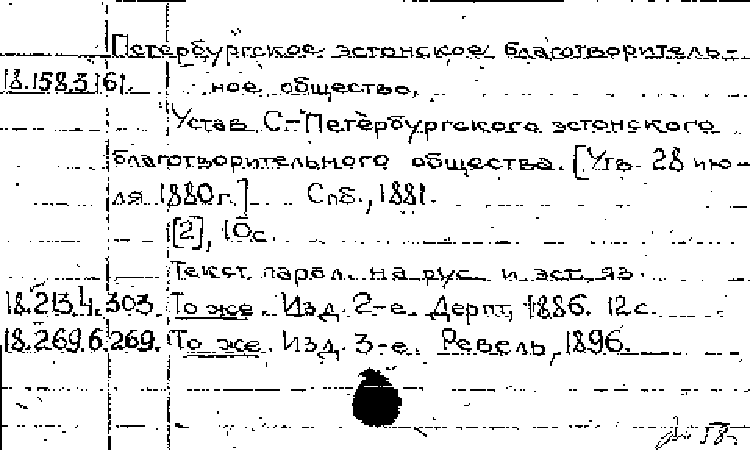 Петербургское эстонское благотворитель-
18.158.3.161. ное общество.
Устав С-Петербургского эстонского
благотворительного общества. [Утв. 28 ию-
ля 1880 г.] Спб., 1881.
[2], 10 с.
Текст парал. на рус. и эст. яз.
18.213.4.303. То же. Изд. 2-е. Дерпт, 1886. 12 с.
18.269.6.269. То же. Изд. 3-е. Ревель, 1896.